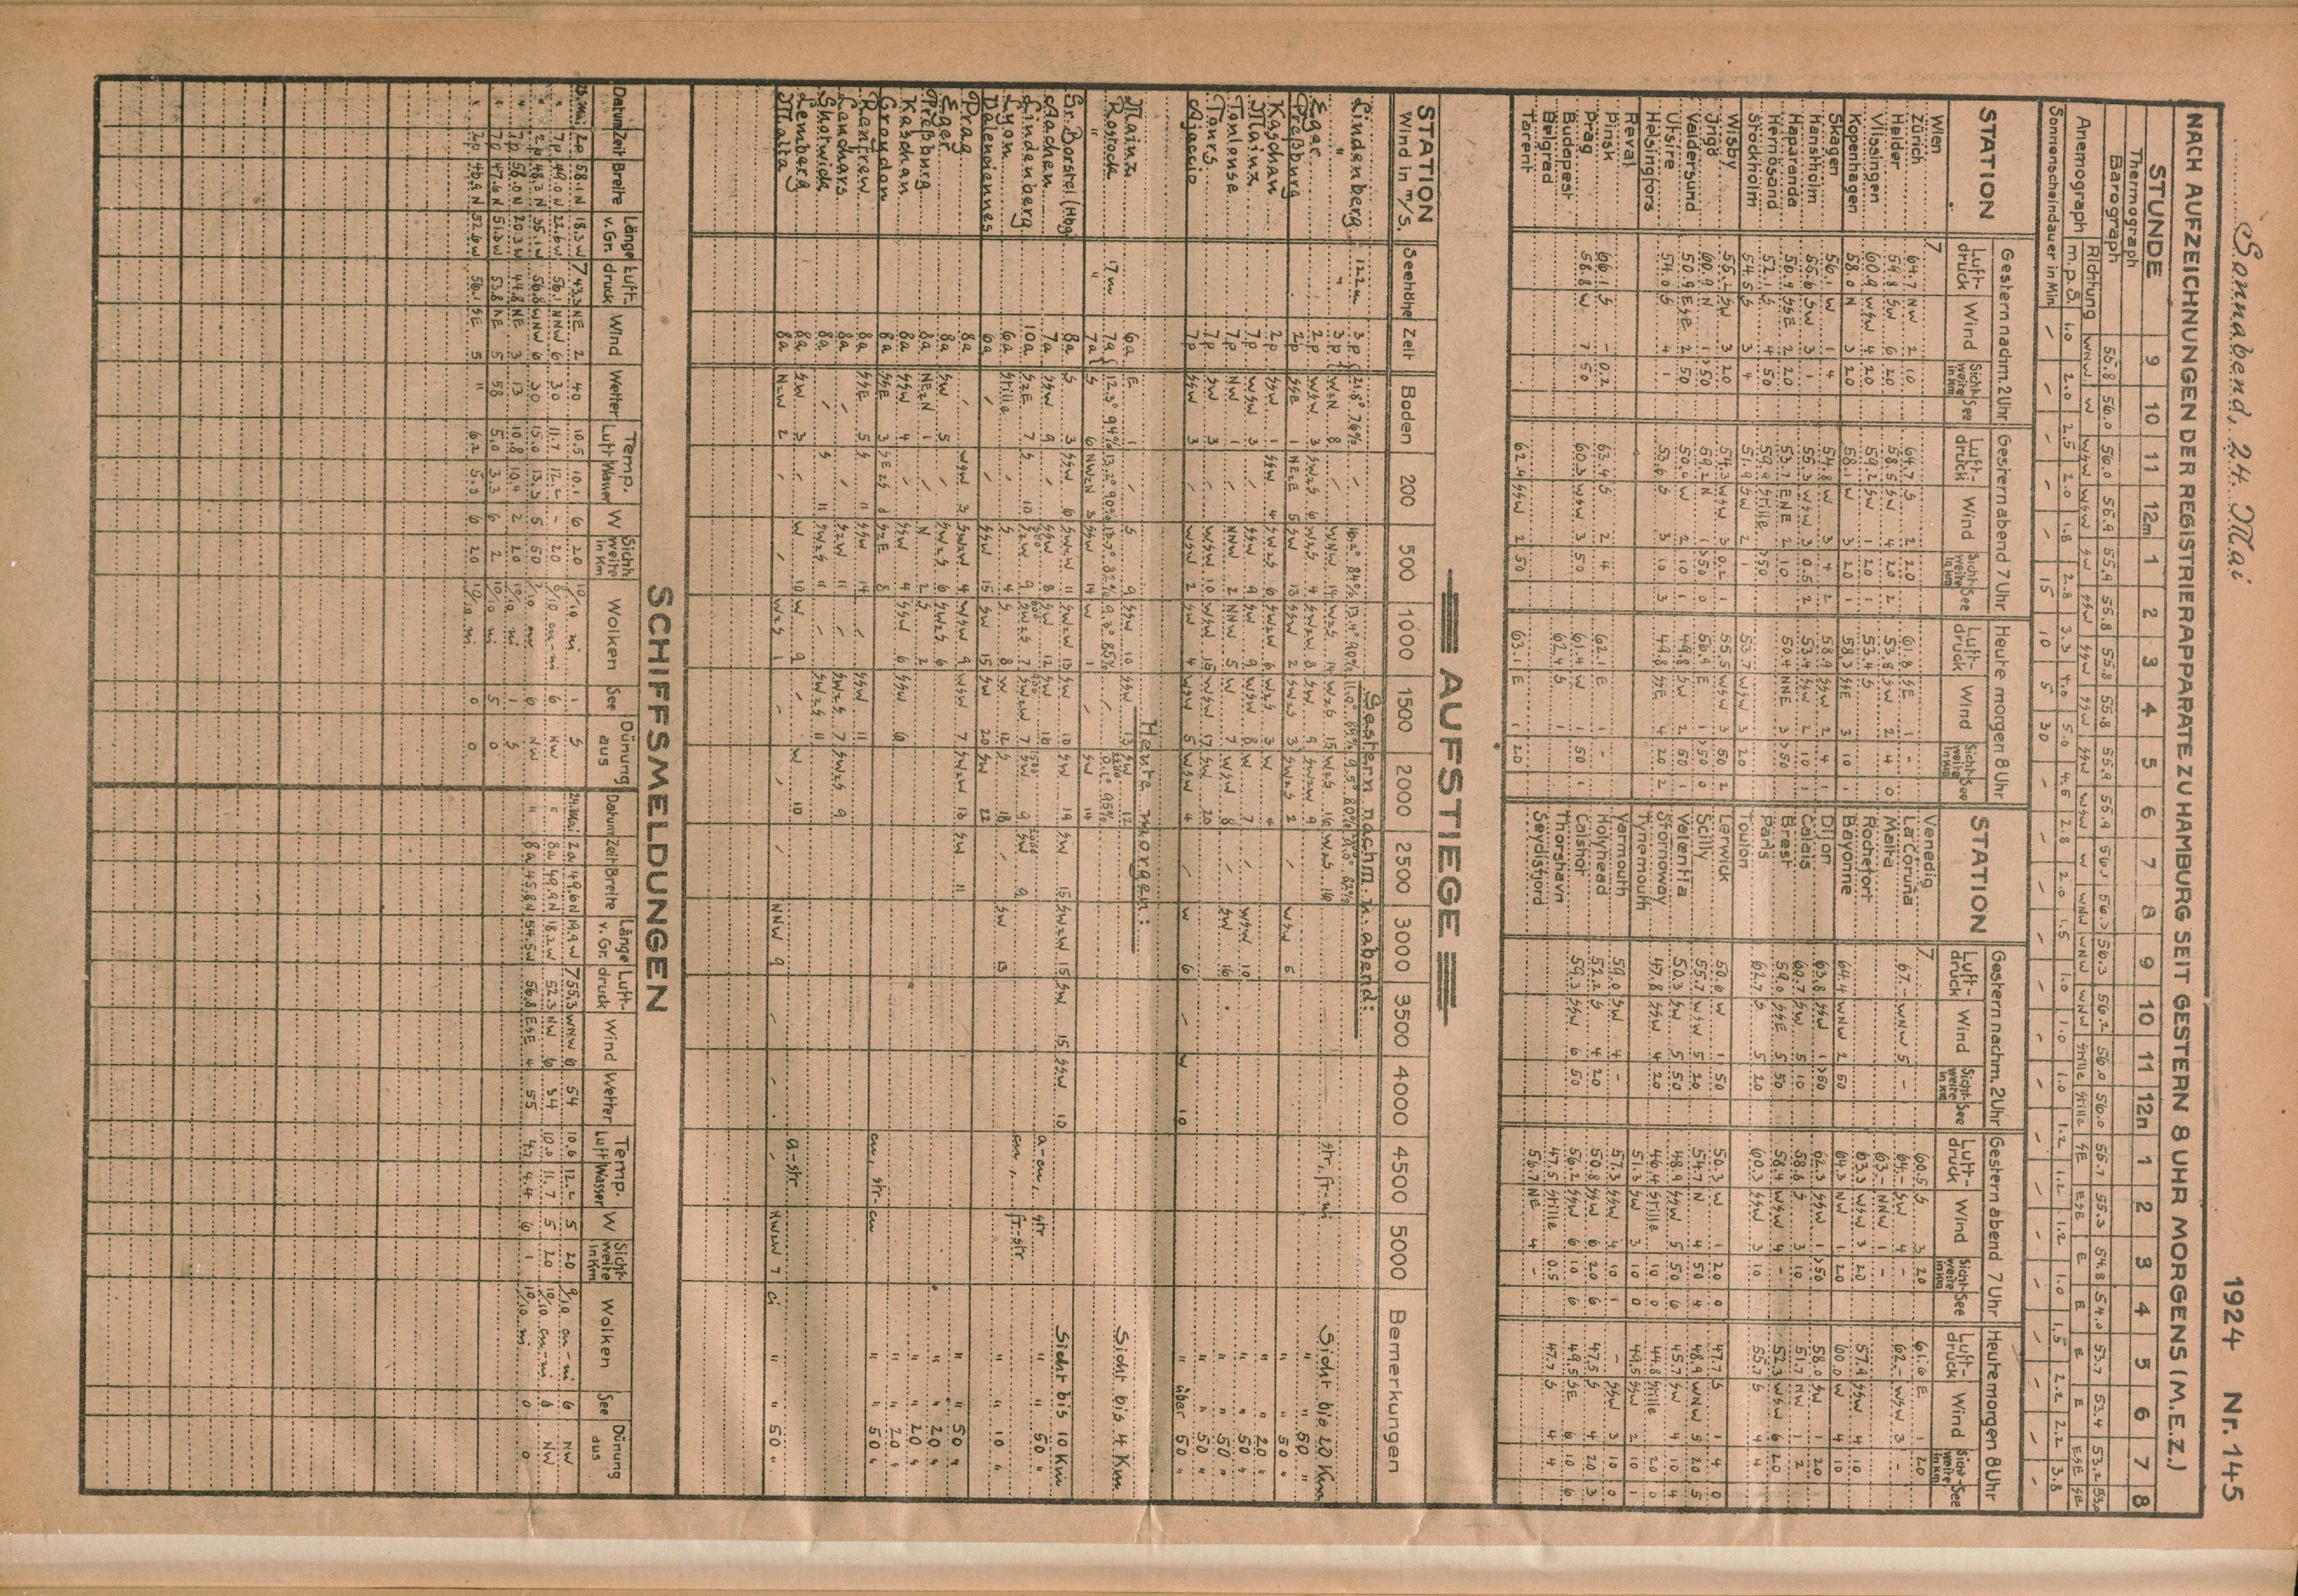 Sonnabend, 24. Mai 1924 Nr. 145
NACH AUFZEICHNUNGEN DER REGISTRIERAPPARATE ZU HAMBURG SEIT GESTERN 8 UHR MORGENS (M.E.Z.)
STUNDE 9 10 11 12m 1 2 3 4 5 6 7 8 9 10 11 12n 1 2 3 4 5 6 7 8
Thermograph
Barograph 55.8 56.0 56.0 55.9 55.9 55.8 55.8 55.8 55.9 55.9 56.1 56.2 56.3 56.2 56.0 56.0 55.7 55.3 54.8 54.0 53.7 53.4 53.2 53.0
Anemograph Richtung WNW W WSW WSW SW SSW SSW SSW SSW WSW W WNW WNW WNW Stille Stille SE ESE E E E E ESE SE
m.p.S. 1.0 2.0 2.5 2.0 1.8 2.8 3.3 4.0 5.0 4.5 2.8 2.0 1.5 1.0 1.0 1.0 1.2 1.2 1.2 1.0 1.5 2.2 2.2 3.8
Sonnenscheindauer in Min. - - - - - 15 10 5 30 - - - - - - - - - - - - - - -
STATION Gestern nachm. 2 Uhr Gestern abend 7 Uhr Heute morgen 8 Uhr STATION Gestern nachm. 2 Uhr Gestern abend 7 Uhr Heute morgen 8 Uhr
Luft-druck Wind Sicht-weite in Km See Luft-druck Wind Sicht-weite in Km See Luft-druck Wind Sicht-weite in Km See Luft-druck Wind Sicht-weite in Km See Luft-druck Wind Sicht-weite in Km See Luft-druck Wind Sicht-weite in Km See
Wien 7 Venedig 7 60.5 S 3 20 61.6 E 1 20
Zürich 64.7 NW 2 10 64.7 S 2 20 61.8 SE 1 - La Coruna 67.- WNW 5 - 64.- SW 4 - 62.- WSW 3 -
Helder 59.8 SW 6 20 58.5 SW 4 20 2 53.8 SW 2 4 0 Malta 63.- NNW 1 -
Vlissingen 60.9 WSW 4 20 59.2 SW 1 20 1 53.4 S Rochefort 63.3 WSW 3 20 57.9 SSW 4 10
Kopenhagen 58.0 N 3 20 58.1 W 3 20 1 58.3 SSE 3 10 1 Bayonne 64.4 WNW 2 50 64.3 NW 1 20 60.0 W 4 10
Skagen 56.1 W 1 4 54.8 W 3 4 2 58.9 SSW 2 4 1 Dijon 63.8 SSW 1 >50 62.3 SSW 1 >50 58.0 SW 1 20
Hanstholm 55.6 SW 3 1 55.3 WSW 3 0.5 2 53.4 SSW 2 10 1 Calais 60.7 SW 5 10 58.8 S 3 10 51.7 NW 1 2
Haparanda 50.9 SSE 2 20 53.7 ENE 2 10 50.4 NNE 3 >50 Brest 59.0 SSE 5 50 58.4 WSW 4 - 52.3 WSW 6 20
Hernösand 52.1 S 4 50 59.9 Stille >50 Paris 62.7 S 5 20 60.3 SSW 3 10 55.7 S 4 4
Stockholm 54.5 S 3 4 51.9 SW 2 1 53.7 WSW 3 20 Toulon
Wisby 55.2 SW 3 20 54.3 WSW 3 0.2 1 55.5 WSW 3 50 2 Lerwick 50.0 W 1 50 50.3 W 1 20 0 47.7 S 1 4 0
Ingö 60.9 N 1 >50 59.2 N 1 >50 0 56.9 E 1 >50 0 Scilly 55.7 WSW 5 20 54.7 N 4 50 4 48.9 WNW 5 20 5
Valdersund 50.9 ESE 2 50 50.4 W 2 10 1 49.8 SW 2 50 1 Valentia 50.3 SW 5 50 48.9 SSW 5 50 6 45.7 SW 4 10 4
Utsire 54.0 S 4 1 53.6 S 3 10 3 49.8 SSE 4 20 2 Stornoway 47.8 SSW 4 20 46.4 Stille 10 0 44.8 Stille 20 0
Helsingfors Tynemouth 51.3 SW 3 10 0 49.5 SSW 2 10 1
Reval Yarmouth 59.0 SW 4 - 57.3 SSW 4 10 1 - SSW 3 10 0
Pinsk 66.1 S - 0.2 63.4 S 2 4 62.1 E 1 - Holyhead 52.2 S 4 20 50.8 SSW 6 20 6 47.5 S 4 20 3
Prag 58.8 W 7 50 60.3 WSW 3 50 61.4 W 1 50 1 Calshot 59.3 SSW 6 50 56.2 SSW 6 10 6 49.5 SE 6 10 6
Budapest 62.4 S 1 Thorshavn 47.5 Stille 0.5 47.7 S 4 4
Belgrad Seydisfjord 56.7 NE 4 -
Tarent 62.4 SSW 2 50 63.1 E 1 20
AUFSTIEGE
STATION Wind in m/S. Seehöhe Zeit Boden 200 500 1000 1500 2000 2500 3000 3500 4000 4500 5000 Bemerkungen
Gestern nachm. u. abend:
Lindenberg 122m 3p 21.8° 76% - 16.2° 84% 13.4° 90% 11.0° 9.5° 80%
" " 3p WzN 8 - WNW 14 WzS 14 WzS 15 WzS 16 WzS 16 str, fr-ni Sicht bis 20 Km
Eger 2p WSW 3 SWzS 6 WzS 4 SWzW 8 9 SWzW 9 " " 50 "
Preßburg 2p SSE 1 NEzE 5 SW 13 SSW 2 SWzS 3 SWzS 2 - WSW 6
Kaschau 2p SSW 1 SSW 4 SWzS 6 SWzW 6 WzS 3 W 4 " " 50 "
Mainz 7p WSW 3 - SSW 9 W 9 WSW 8 7 WSW 10 " " 20 "
Toulouse 7p NW 1 - NNW 2 NNW 5 W 7 WSW 8 - SW 16 " " 50 "
Tours 7p SW 3 - WSW 10 WSW 15 WSW 17 SW 20 " " 50 "
Ajaccio 7p SSW 3 - WSW 2 SW 4 WSW 5 WSW 4 - W 6 - W 10 " über 50 "
Heute morgen:
Mainz 6a E 1 - S 9 SSW 10 SSW 13 SW 12 Sicht bis 4 Km
Rostock 17m 7a 12.3° 94% 13.2° 90% 13.7° 82% 9.3° 85% - 0.1° 95%
" " 7a S 6 NWzN 3 SSW 14 W 1 - SW 14
Gr. Borstel (Hbg) 8a S 3 SSW 6 SWzW 11 SWzW 13 SW 10 SW 19 SW 15 SWzW 15 SW 15 SSW 10 Sicht bis 10 Km
Aachen 7a SSW 9 SSW 8 SW 12 SW 18 a-cu, str " " 50 "
Lindenberg 10a SzE 7 S 10 SzW 9 SWzS 7 SWzW 7 SW 9 SW 9 cu, fr-str
Lyon 6a Stille - S 4 S 8 W 12 S 18 - SW 13 " " 10 "
Valenciennes 6a - - SSW 15 SW 15 SW 20 SW 22
Prag 8a - WSW 3 SWzW 4 WSW 9 WSW 7 SWzW 13 SW 11 " " 50 "
Eger 8a SW 5 SWzS 6 SWzS 6
Preßburg 8a NEzN 1 - N 2 S 2 " " 20 "
Kaschau 8a SSW 4 - SSW 4 SSW 6 SSW 6 " " 20 "
Croydon 8a SSE 3 SEzS 8 SzE 8 cu, str-cu " " 20 "
Renfrew 8a SSE 5 S 11 SSW 14 - SSW 11 " " 50 "
Leuchars 8a - - SzW 11 - SWzS 7 SWzS 9
Shotwick 8a - S 11 SWzS 11 - SWzS 11
Lemberg 8a SW 3 - W 10 W 9 - W 10 a-str
Malta 8a NzW 2 - - WzS 1 - - - NNW 9 - - - NWzW 7 ci " " 50 "
SCHIFFSMELDUNGEN
Datum Zeit Breite Länge v. Gr. Luft-druck Wind Wetter Temp. Luft Wasser W Sicht-weite in Km Wolken See Dünung aus Datum Zeit Breite Länge v. Gr. Luft-druck Wind Wetter Temp. Luft Wasser W Sicht-weite in Km Wolken See Dünung aus
23. Mai 2p 58.1 N 18.3 W 743.3 NE 2 40 10.5 10.1 6 20 10/10 ni 1 S 24. Mai 2a 49.6 N 19.9 W 755.3 WNW 6 54 10.6 12.2 5 20 9/10 cu-ni 6 NW
" 7p 49.0 N 22.6 W 56.1 NNW 6 30 11.7 12.2 - 20 6/10 cu-ni 6 NW " 8a 49.9 N 18.2 W 52.3 NW 6 34 10.0 11.7 5 20 10/10 cu-ni 6 NW
" 2p 48.3 N 35.1 W 56.8 WNW 6 30 15.0 13.3 5 50 7/10 cu 6 NW " 8a 45.8 N 54.5 W 56.8 ESE 4 55 4.7 4.4 6 1 10/10 ni 0 0
" 7p 58.0 N 20.3 W 44.8 NE 3 13 10.8 10.4 2 20 10/10 ni 1 S
" 7p 47.6 N 51.3 W 53.8 NE 5 58 5.0 3.3 6 2 10/10 ni 5 0
" 2p 46.9 N 52.6 W 56.1 SE 5 " 6.2 5.3 6 20 10/10 ni 0 0